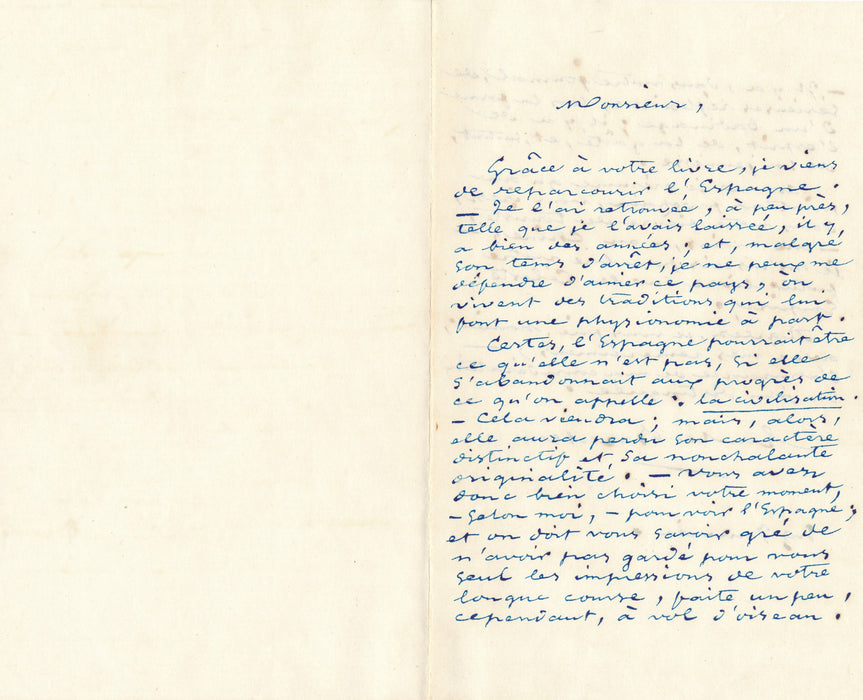 Monsieur,
Grâce à votre livre, je viens
de reparcourir l'Espagne.
— Je l'ai retrouvée, à peu près,
telle que je l'avais laissée, il y
a bien des années ; et, malgré
son tems d'arrêt, je ne peux me
défendre d'aimer ce pays, où
vivent des traditions qui lui
font une physionomie à part.
Certes, l'Espagne pourrait être
ce qu'elle n'est pas, si elle
s'abandonnait aux progrès de
ce qu'on appelle : la civilisation.
— Cela viendra ; mais, alors,
elle aura perdu son caractère
distinctif et sa nonchalante
originalité. — Vous avez
donc bien choisi votre moment,
— selon moi, — pour voir l'Espagne ;
et on doit vous savoir gré de
n'avoir pas gardé pour vous
seul les impressions de votre
longue course, faite un peu,
cependant, à vol d'oiseau.